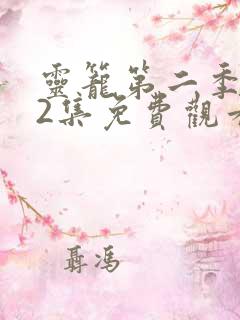 靈籠第二季
2集免費觀
聶馮